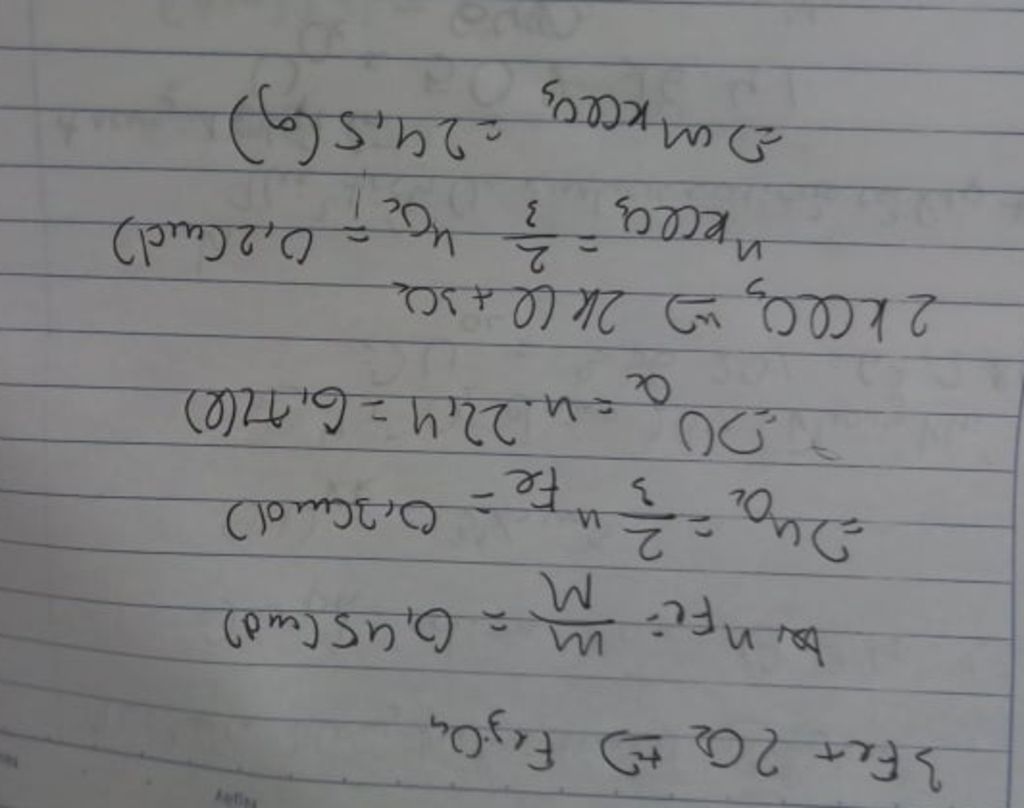 Ngày
3Fe + 2O₂ => Fe₃O₄
n Fe = m/M = 0,45 (mol)
=> nO₂ = 2/3 n Fe = 0,3 (mol)
=> V O₂ = n . 22,4 = 6,72 (l)
2KClO₃ => 2KCl + 3O₂
n KClO₃ = 2/3 nO₂ = 0,2 (mol)
=> m KClO₃ = 24,5 (g)